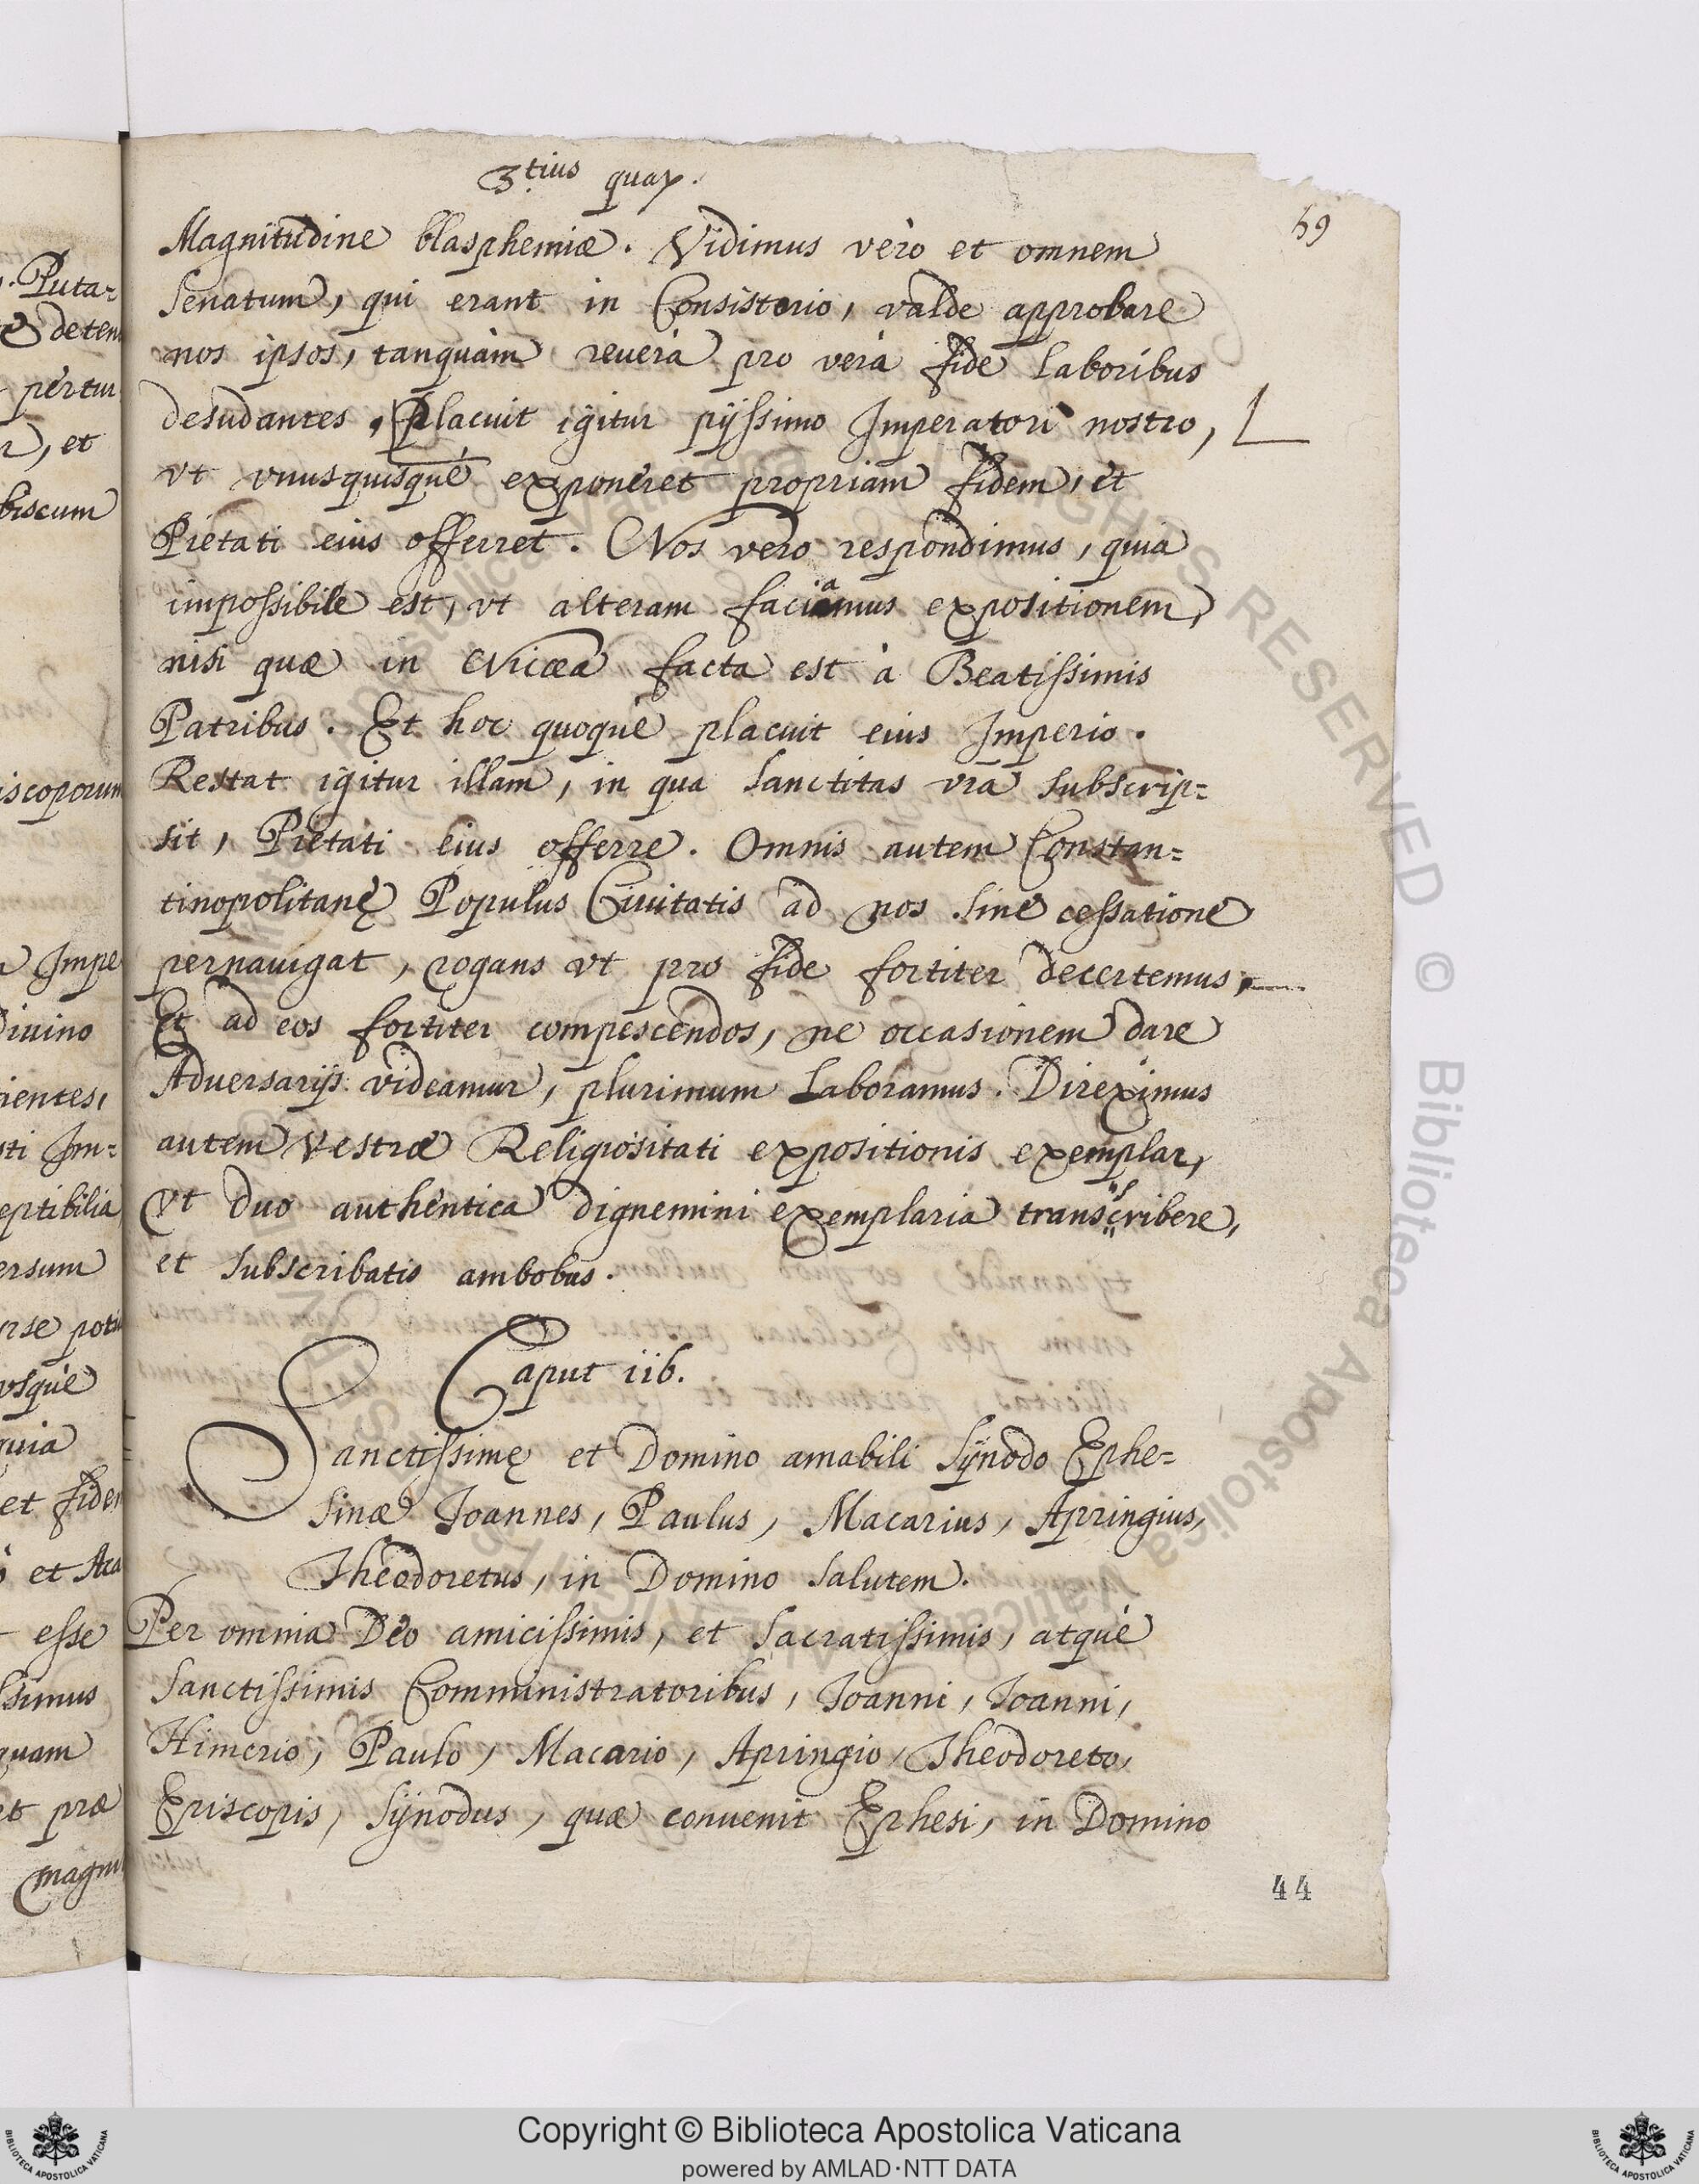 3.tius quat.
59
Magnitudine blasphemiæ. Vidimus vero et omnem
Senatum, qui erant in Consistorio, valde approbare
nos ipsos, tanquàm reuerà pro verà fide laboribus
desudantes, Placuit igitur pijssimo Imperatori nostro,
vt vnusquisquè exponeret propriam fidem, et
Pietati eius offerret. Nos vero respondimus, quia
impossibile est, vt alteram faciamus expositionem,
nisi quæ in Nicæa facta est à Beatissimis
Patribus. Et hoc quoquè placuit eius Imperio.
Restat igitur illam, in qua Sanctitas vrã subscrip=
sit, Pietati eius offerre. Omnis autem Constan=
tinopolitanę Populus Ciuitatis ad nos sine cessatione
pernauigat, rogans vt pro fide fortiter decertemus,
Et ad eos fortiter compescendos, ne occasionem dare
Adversarijs videamur, plurimum Laboramus. Direximus
autem Vestræ Religiositati expositionis exemplar,
Vt duo authentica dignemini exemplaria transcribere,
et subscribatis ambobus.
Caput iib.
Sanctissimę et Domino amabili Sÿnodo Ephe=
sinæ Joannes, Paulus, Macarius, Apringius,
Theodoretus, in Domino Salutem.
Per omnia Deo amicissimis, et Sacratissimis, atquè
Sanctissimis Comministratoribus, Joanni, Joanni,
Himerio, Paulo, Macario, Apringio, Theodoreto,
Episcopis, Sÿnodus, quæ conuenit Ephesi, in Domino
44
. Puta=
deten
pertur
, et
biscum
iscoporum
Impe
Diuino
rientes,
sti Im=
eptibilia
ersum
rse poti
vsquè
quia
et fidem
et Aca
esse
ssimus
quam
et præ
magni
Copyright © Biblioteca Apostolica Vaticana
powered by AMLAD·NTT DATA